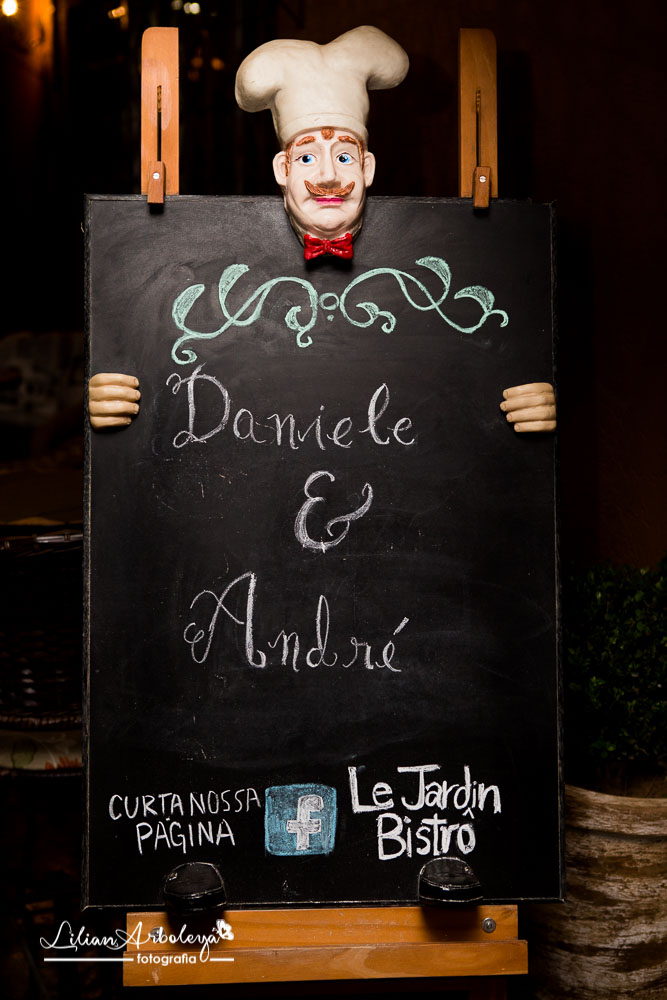 Daniele
&
André
CURTA NOSSA
PÁGINA
f
Le Jardin
Bistrô
Lilian Arboleya
fotografia